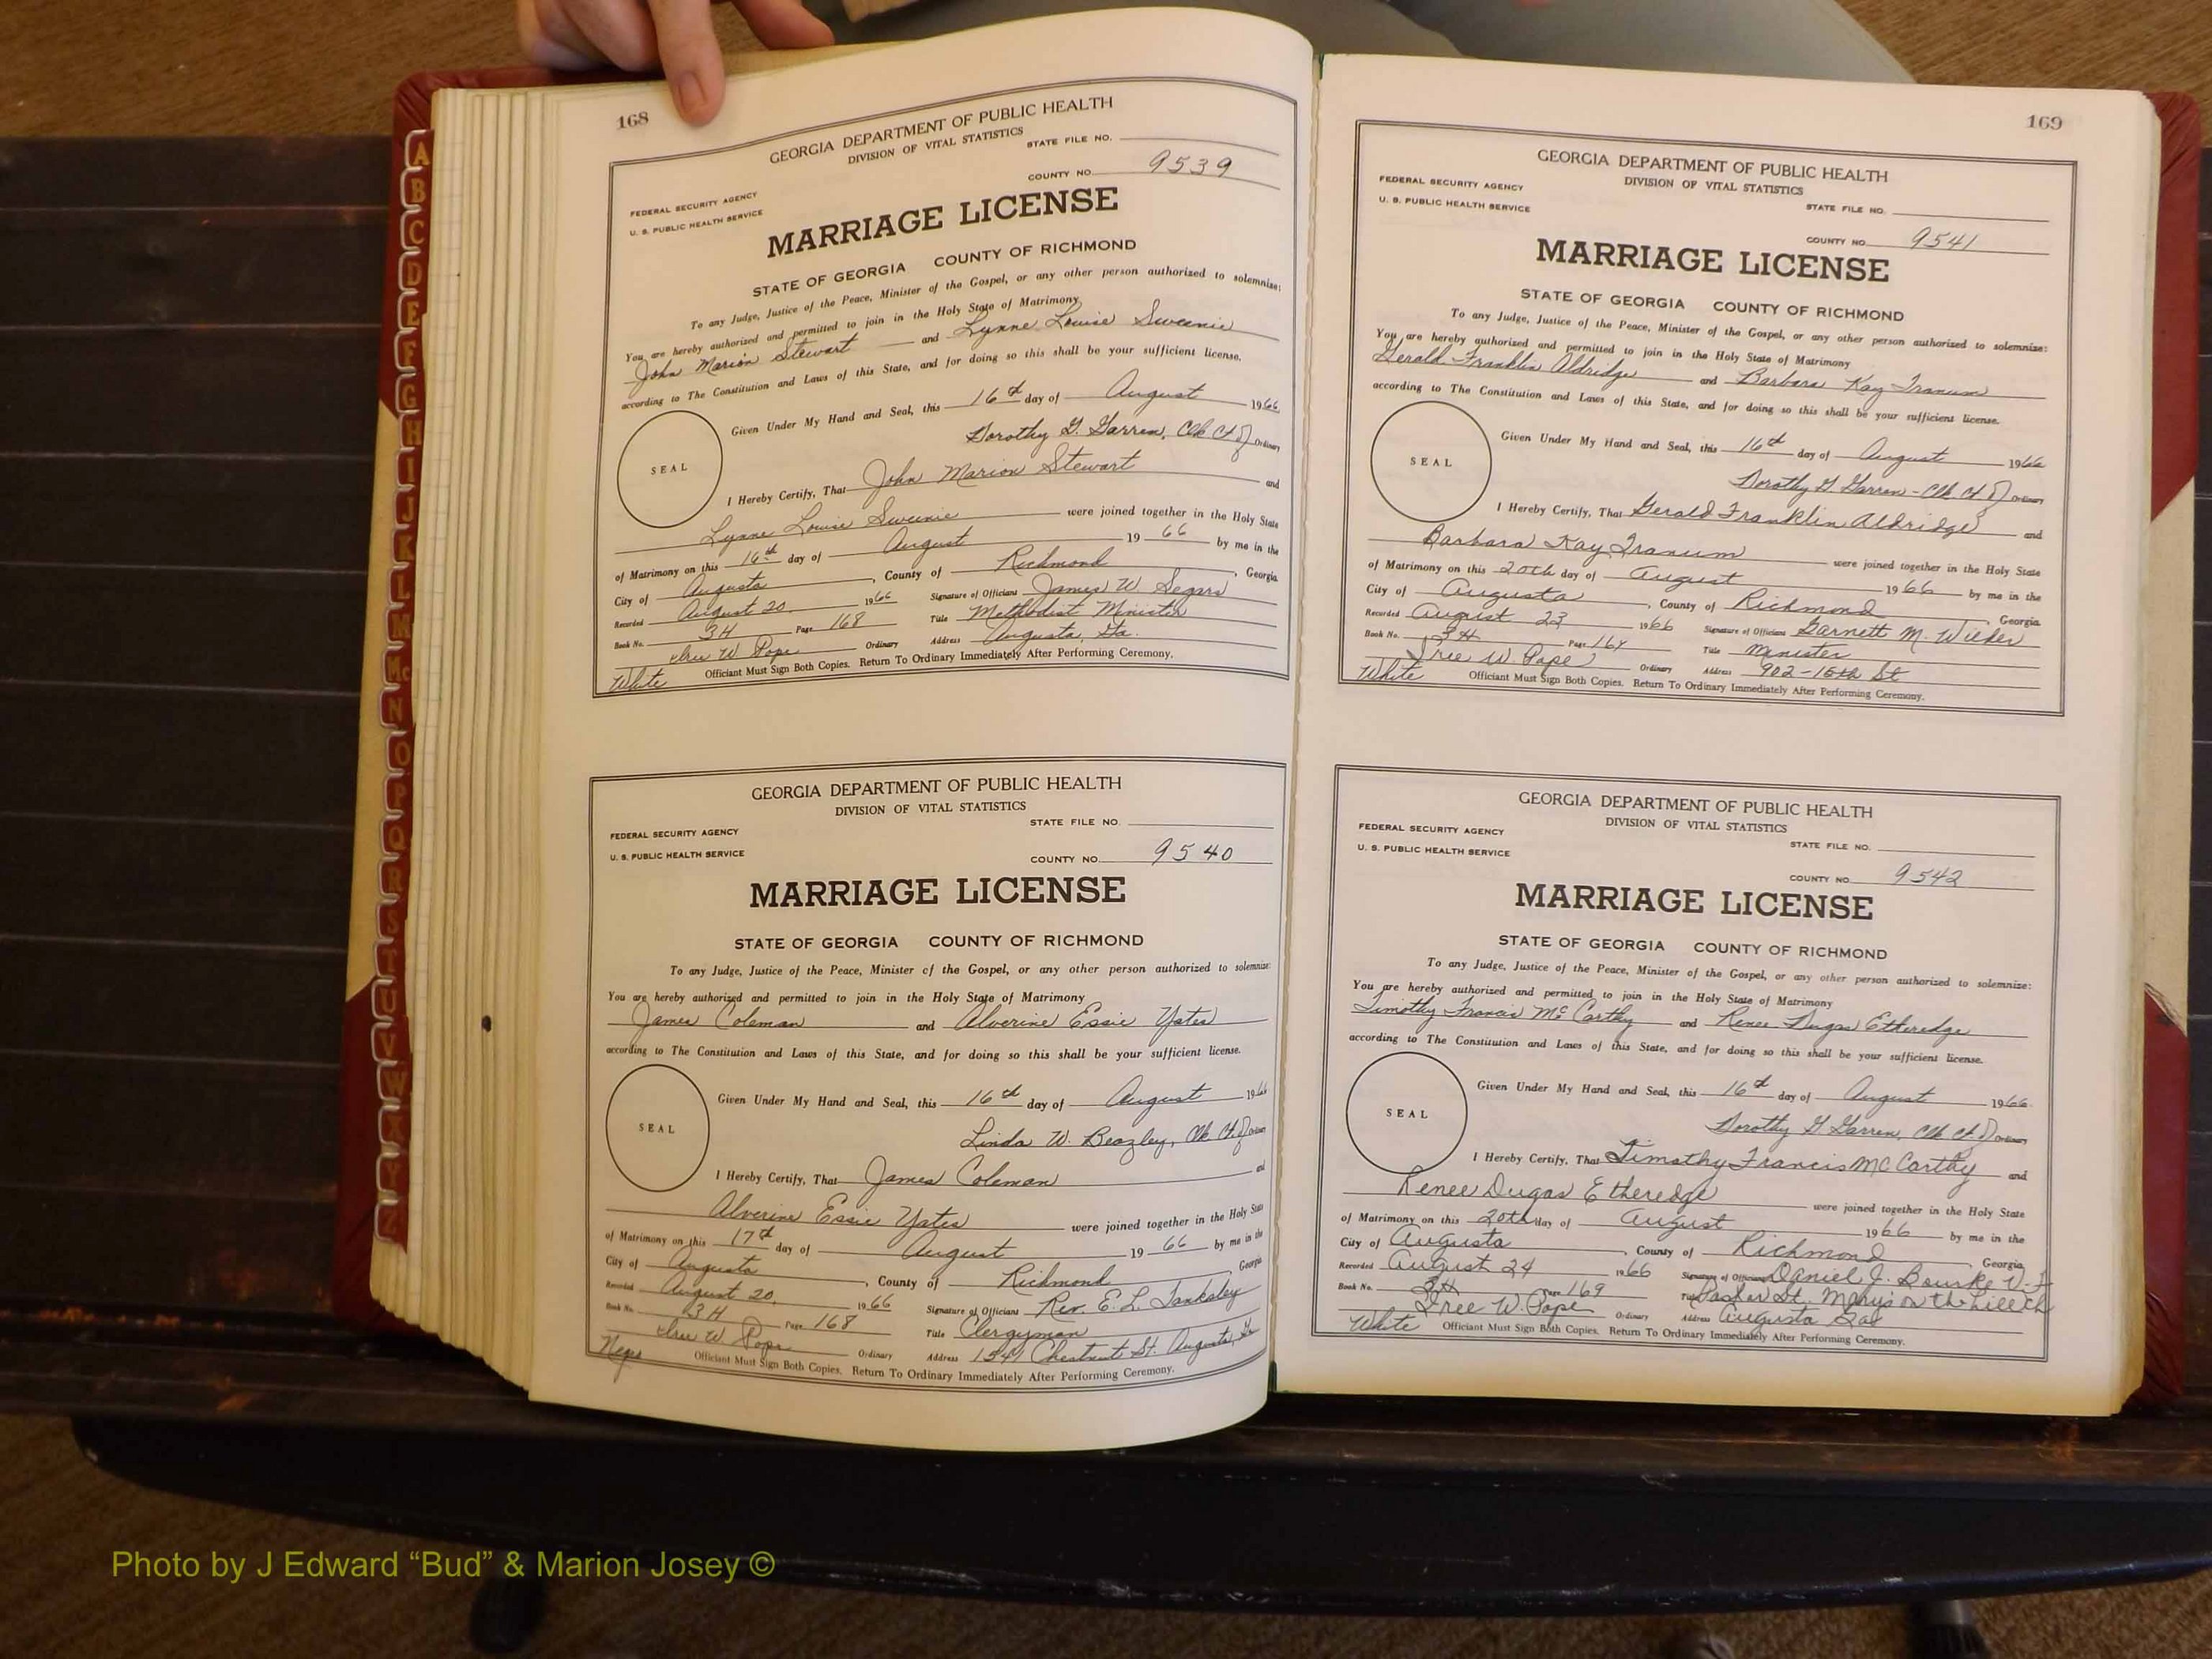 168
GEORGIA DEPARTMENT OF PUBLIC HEALTH
DIVISION OF VITAL STATISTICS
STATE FILE NO.
COUNTY NO. 9539
FEDERAL SECURITY AGENCY
U. S. PUBLIC HEALTH SERVICE
MARRIAGE LICENSE
STATE OF GEORGIA COUNTY OF RICHMOND
To any Judge, Justice of the Peace, Minister of the Gospel, or any other person authorized to solemnize:
You are hereby authorized and permitted to join in the Holy State of Matrimony
John Marion Stewart and Lynne Louise Sweenie
according to The Constitution and Laws of this State, and for doing so this shall be your sufficient license.
Given Under My Hand and Seal, this 16th day of August 1966
Dorothy G. Garren, Clk Ct of Ordinary
SEAL
I Hereby Certify, That John Marion Stewart and
Lynne Louise Sweenie were joined together in the Holy State
of Matrimony on this 16th day of August 19 66 by me in the
City of Augusta, County of Richmond, Georgia
Recorded August 20 1966 Signature of Officiant James W. Segars
Book No. 3H Page 168 Title Methodist Minister
W Pope Ordinary Address Augusta, Ga.
White Officiant Must Sign Both Copies. Return To Ordinary Immediately After Performing Ceremony.
GEORGIA DEPARTMENT OF PUBLIC HEALTH
DIVISION OF VITAL STATISTICS
STATE FILE NO.
FEDERAL SECURITY AGENCY
U. S. PUBLIC HEALTH SERVICE
COUNTY NO. 9540
MARRIAGE LICENSE
STATE OF GEORGIA COUNTY OF RICHMOND
To any Judge, Justice of the Peace, Minister of the Gospel, or any other person authorized to solemnize:
You are hereby authorized and permitted to join in the Holy State of Matrimony
James Coleman and Alverine Essie Yates
according to The Constitution and Laws of this State, and for doing so this shall be your sufficient license.
Given Under My Hand and Seal, this 16th day of August 1966
Linda W. Beazley, Clk Ct of Ordinary
SEAL
I Hereby Certify, That James Coleman and
Alverine Essie Yates were joined together in the Holy State
of Matrimony on this 17th day of August 19 66 by me in the
City of Augusta, County of Richmond Georgia
Recorded August 20, 1966 Signature of Officiant Rev. E. L. Tanksley
Book No. 3H Page 168 Title Clergyman
W Pope Ordinary Address 1541 Chestnut St. Augusta, Ga
Negro Officiant Must Sign Both Copies. Return To Ordinary Immediately After Performing Ceremony.
169
GEORGIA DEPARTMENT OF PUBLIC HEALTH
DIVISION OF VITAL STATISTICS
FEDERAL SECURITY AGENCY
U. S. PUBLIC HEALTH SERVICE
STATE FILE NO.
COUNTY NO. 9541
MARRIAGE LICENSE
STATE OF GEORGIA COUNTY OF RICHMOND
To any Judge, Justice of the Peace, Minister of the Gospel, or any other person authorized to solemnize:
You are hereby authorized and permitted to join in the Holy State of Matrimony
Gerald Franklin Aldridge and Barbara Kay Tranum
according to The Constitution and Laws of this State, and for doing so this shall be your sufficient license.
Given Under My Hand and Seal, this 16th day of August 1966
Dorothy G. Garren - Clk Ct of Ordinary
SEAL
I Hereby Certify, That Gerald Franklin Aldridge and
Barbara Kay Tranum were joined together in the Holy State
of Matrimony on this 20th day of August 1966 by me in the
City of Augusta, County of Richmond Georgia
Recorded August 23 1966 Signature of Officiant Garnett M. Wilder
Book No. 3H Page Title Minister
W. Pope Ordinary Address 902-15th St
White Officiant Must Sign Both Copies. Return To Ordinary Immediately After Performing Ceremony.
GEORGIA DEPARTMENT OF PUBLIC HEALTH
DIVISION OF VITAL STATISTICS
FEDERAL SECURITY AGENCY
U. S. PUBLIC HEALTH SERVICE
STATE FILE NO.
COUNTY NO. 9542
MARRIAGE LICENSE
STATE OF GEORGIA COUNTY OF RICHMOND
To any Judge, Justice of the Peace, Minister of the Gospel, or any other person authorized to solemnize:
You are hereby authorized and permitted to join in the Holy State of Matrimony
Timothy Francis McCarthy and Renee Dugas Etheredge
according to The Constitution and Laws of this State, and for doing so this shall be your sufficient license.
Given Under My Hand and Seal, this 16th day of August 1966
Dorothy G Garren, Clk Ct of Ordinary
SEAL
I Hereby Certify, That Timothy Francis McCarthy and
Renee Dugas Etheredge were joined together in the Holy State
of Matrimony on this 20th day of August 1966 by me in the
City of Augusta, County of Richmond Georgia
Recorded August 24 1966 Signature of Officiant Daniel J. Bourke V.F
Book No. 3H Page 169 Title Pastor St. Mary's on the Hill Ch
W. Pope Ordinary Address Augusta Ga
White Officiant Must Sign Both Copies. Return To Ordinary Immediately After Performing Ceremony.
A
B
C
D
E
F
G
H
I
J
K
L
M
Mc
N
O
P
Q
R
S
T
U
V
W
X
Y
Z
Photo by J Edward “Bud” & Marion Josey ©